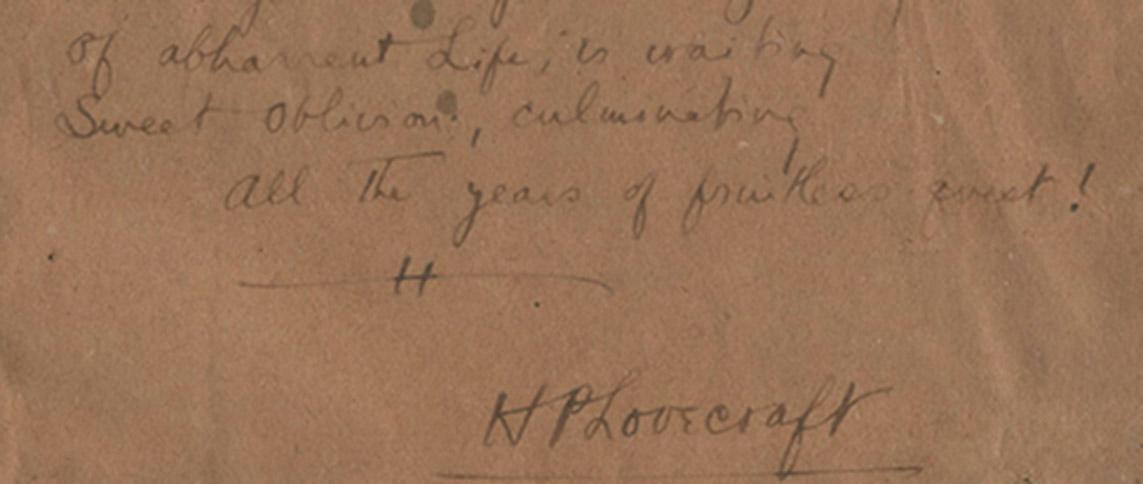 Of abhorrent Life, is waiting
Sweet Oblivion, culminating
All the years of fruitless quest!
H P Lovecraft